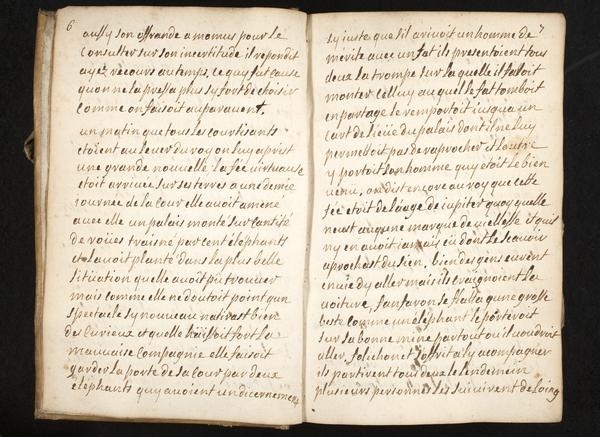 6
aussy son offrande a momus pour le
Consulter sur son incertitude il repondit
ayez recours au temps, ce quy fut cause
quon ne la pressa plus sy fort de choisir
comme on faisoit auparavent.
un matin que tous les courtisants
etoient au lever du roy on luy aprist
une grande nouvelle la fée virtuause
etoit arrivée sur ses terres a une demie
journée de la cour elle avoit amené
avec elle un palais monté sur cantité
de roües traisné par cent éléphants
et lavoit planté dans la plus belle
situation quelle avoit pu trouver
mais comme elle ne doutoit point qun
spectacle sy nouveau natirast bien
des curieux et quelle haïssoit fort la
mauvaise compagnie elle faisoit
garder la porte de sa cour par deux
éléphants quy avoient un dicernement
7
sy juste que sil arivoit un homme de
mérite avec un fat ils presentoient tous
deux la trompe sur laquelle il faloit
monter celluy au quel le fat tomboit
en partage le remportoit jusqua un
cart de lieüe du palais dont il ne luy
permettoit pas de raprocher et lautre
y portoit son homme quy etoit le bien
venu. on dist encore au roy que cette
fée etoit de lâage de jupiter quoy quelle
neust aucune marque de vieillesse et quis
ny en avoit jamais eü dont le scavoir
aprochast du sien. bien des gens eurent
envie dy aller mais ils craignoient la
voiture, fanfaron se flatta qune grosse
beste comme un éléphant le porteroit
sur sa bonne mine partout ou il voudroit
aller, folichon et s'offrit a ly acompagner
ils partirent tous deux le lendemein
plusieurs personnes les suivirent de loing